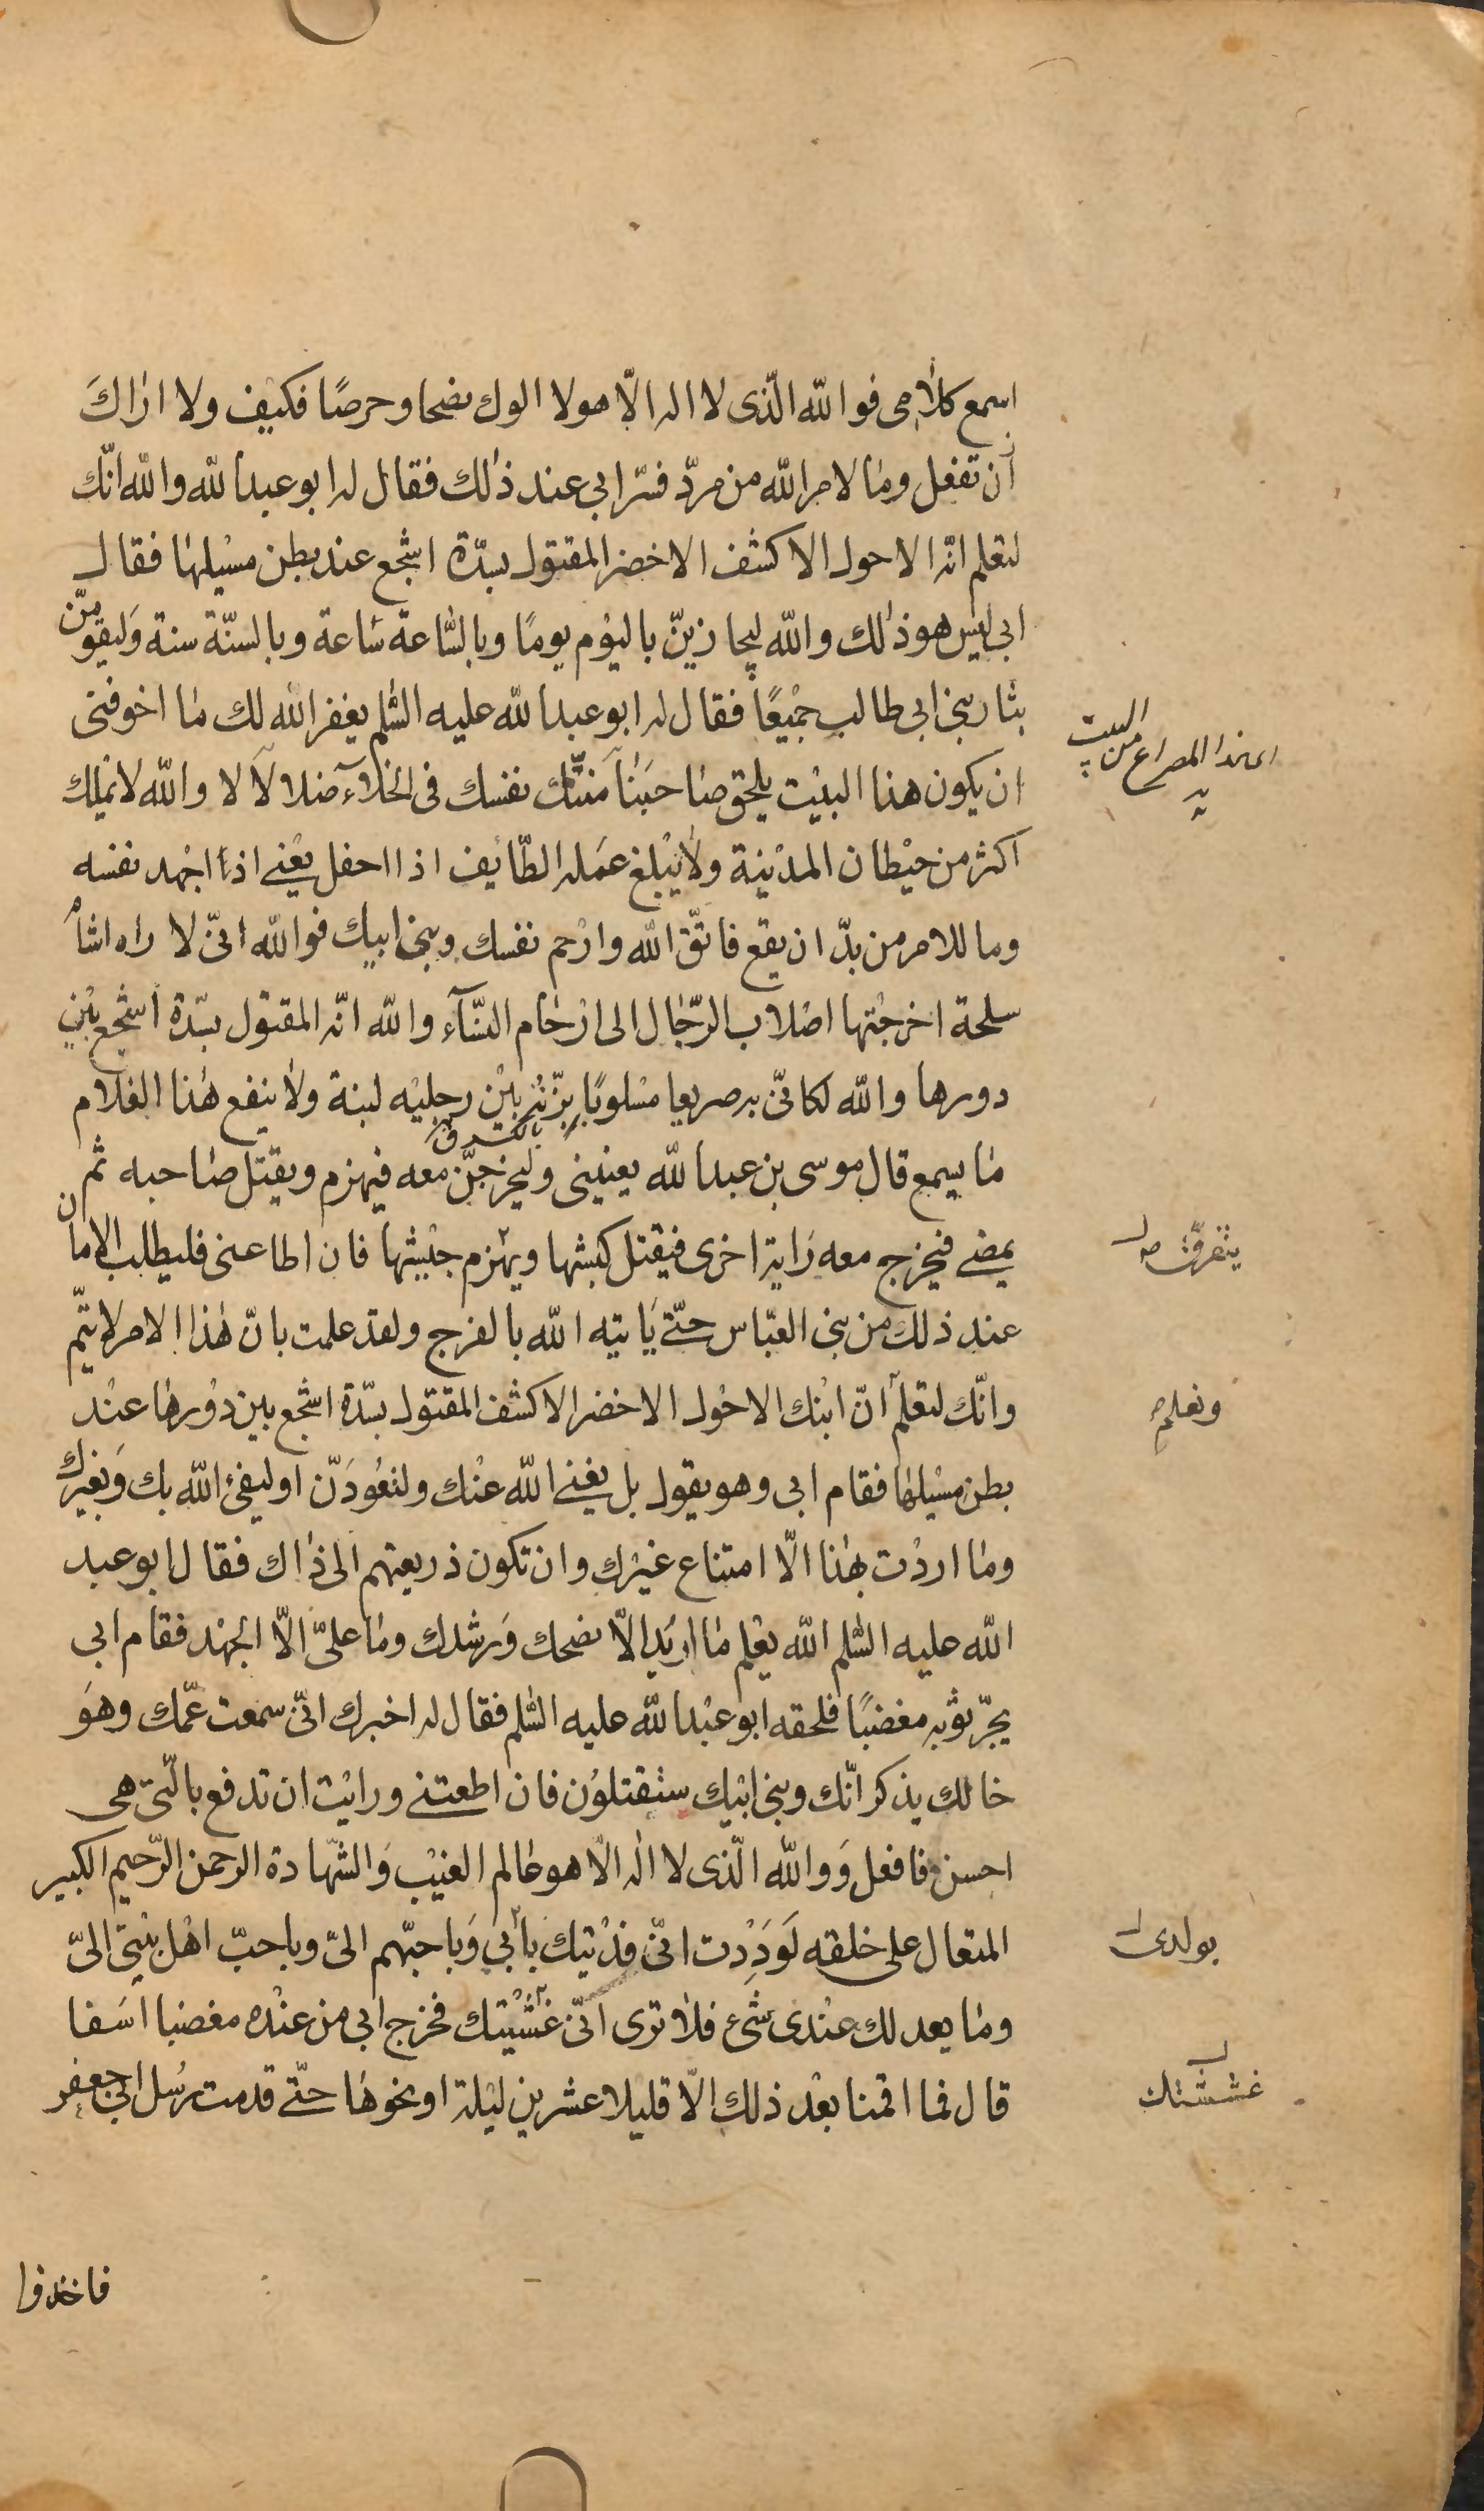 اسمع كلامى فوالله الّذى لا اله الّا هو لا الوك نصحا وحرصًا فكيف ولا اراكَ
أن تفعل وما لامر الله من مردّ فسّر ابى عند ذٰلك فقال له ابو عبدالله والله انّك
لتعلم انّه الاحول الاكشف الاخضر المقتول بسدّة اشجع عند بطن مسيلها فقال
ابى ليس هو ذٰلك والله ليحازينّ باليوم يومًا وبالسّاعة سَاعة وبالسنّة سنة وَليقومنّ
بثار بنى ابى طالب جميعًا فقال له ابو عبدالله عليه السّلم يغفر الله لك ما اخوفنى
ان يكون هذا البيت يلحق صاحبَنا مَنّتك نفسك فى الخلآء ضلالاً لا والله لا تملك
اكثر من حيطان المدينة ولا يبلغ عمَله الطّائف اذا احفل يعني اذا اجهد نفسه
وما للامر من بدّ ان يقع فاتّق الله وارحم نفسك وبنى ابيك فوالله انّى لا راه اشأم
سلحة اخرجتها اصلاب الرّجال الى ارحام النسآء والله انّه المقتول بسدّة اشجع بين
دورها والله لكانّى به صريعا مسلوبًا بزّته بين رجليه لبنة ولا ينفع هذا الغلام
بالكسر ق
ما يسمع قال موسى بن عبدالله يعنينى وليخرجنّ معه فيهزم ويقتل صاحبه ثم
يمضى فيخرج معه رَاية اخرى فيقتل كبشها ويتهزم جيشها فان اطاعنى فليطلب الامان
عند ذلك من بنى العبّاس حتّى يَأتيه الله بالفرج ولقد علمت بانّ هٰذا الامر لا يتمّ
وانّك لتعلم انّ ابنك الاحول الاخضر الاكشف المقتول بسدّة اشجع بين دورها عند
بطن مسيلها فقام ابى وهو يقول بل يغنى الله عنك ولتعُودَنّ او ليفئ الله بك وَبغيرك
وما اردت بهٰذا الّا امتناع غيرك وان تكون ذريعتهم الى ذاك فقال ابو عبد
الله عليه السّلم الله يعلم ما اريد الّا نصحك وَرشدك وما علىّ الّا الجهد فقام ابى
يجرّ ثوبه مغضبًا فلحقه ابو عبدالله عليه السّلم فقال له اخبرك انّى سمعت عمّك وهوَ
خالك يذكر انّك وبنى ابيك ستقتلون فان اطعتنى ورايت ان تدفع بالّتى هى
احسن فافعل وَوالله الّذى لا اله الّا هو عالم الغيب وَالشّهادة الرحمن الرّحيم الكبير
المتعال على خلقه لَوَدِدت انّى فديتك بأبى وَباحبّهم الىّ وباحبّ اهل بيتى الىّ
وما يعدلك عندى شئ فلا ترى انّى غششتك فخرج ابى من عنده مغضبا اسَفا
قال فما اقمنا بعد ذلك الّا قليلا عشرين ليلة او نحوها حتّى قدمت رسُل ابى جعفر
فاخذوا
يتفرّق
وتعلم
بولدى
غششتك